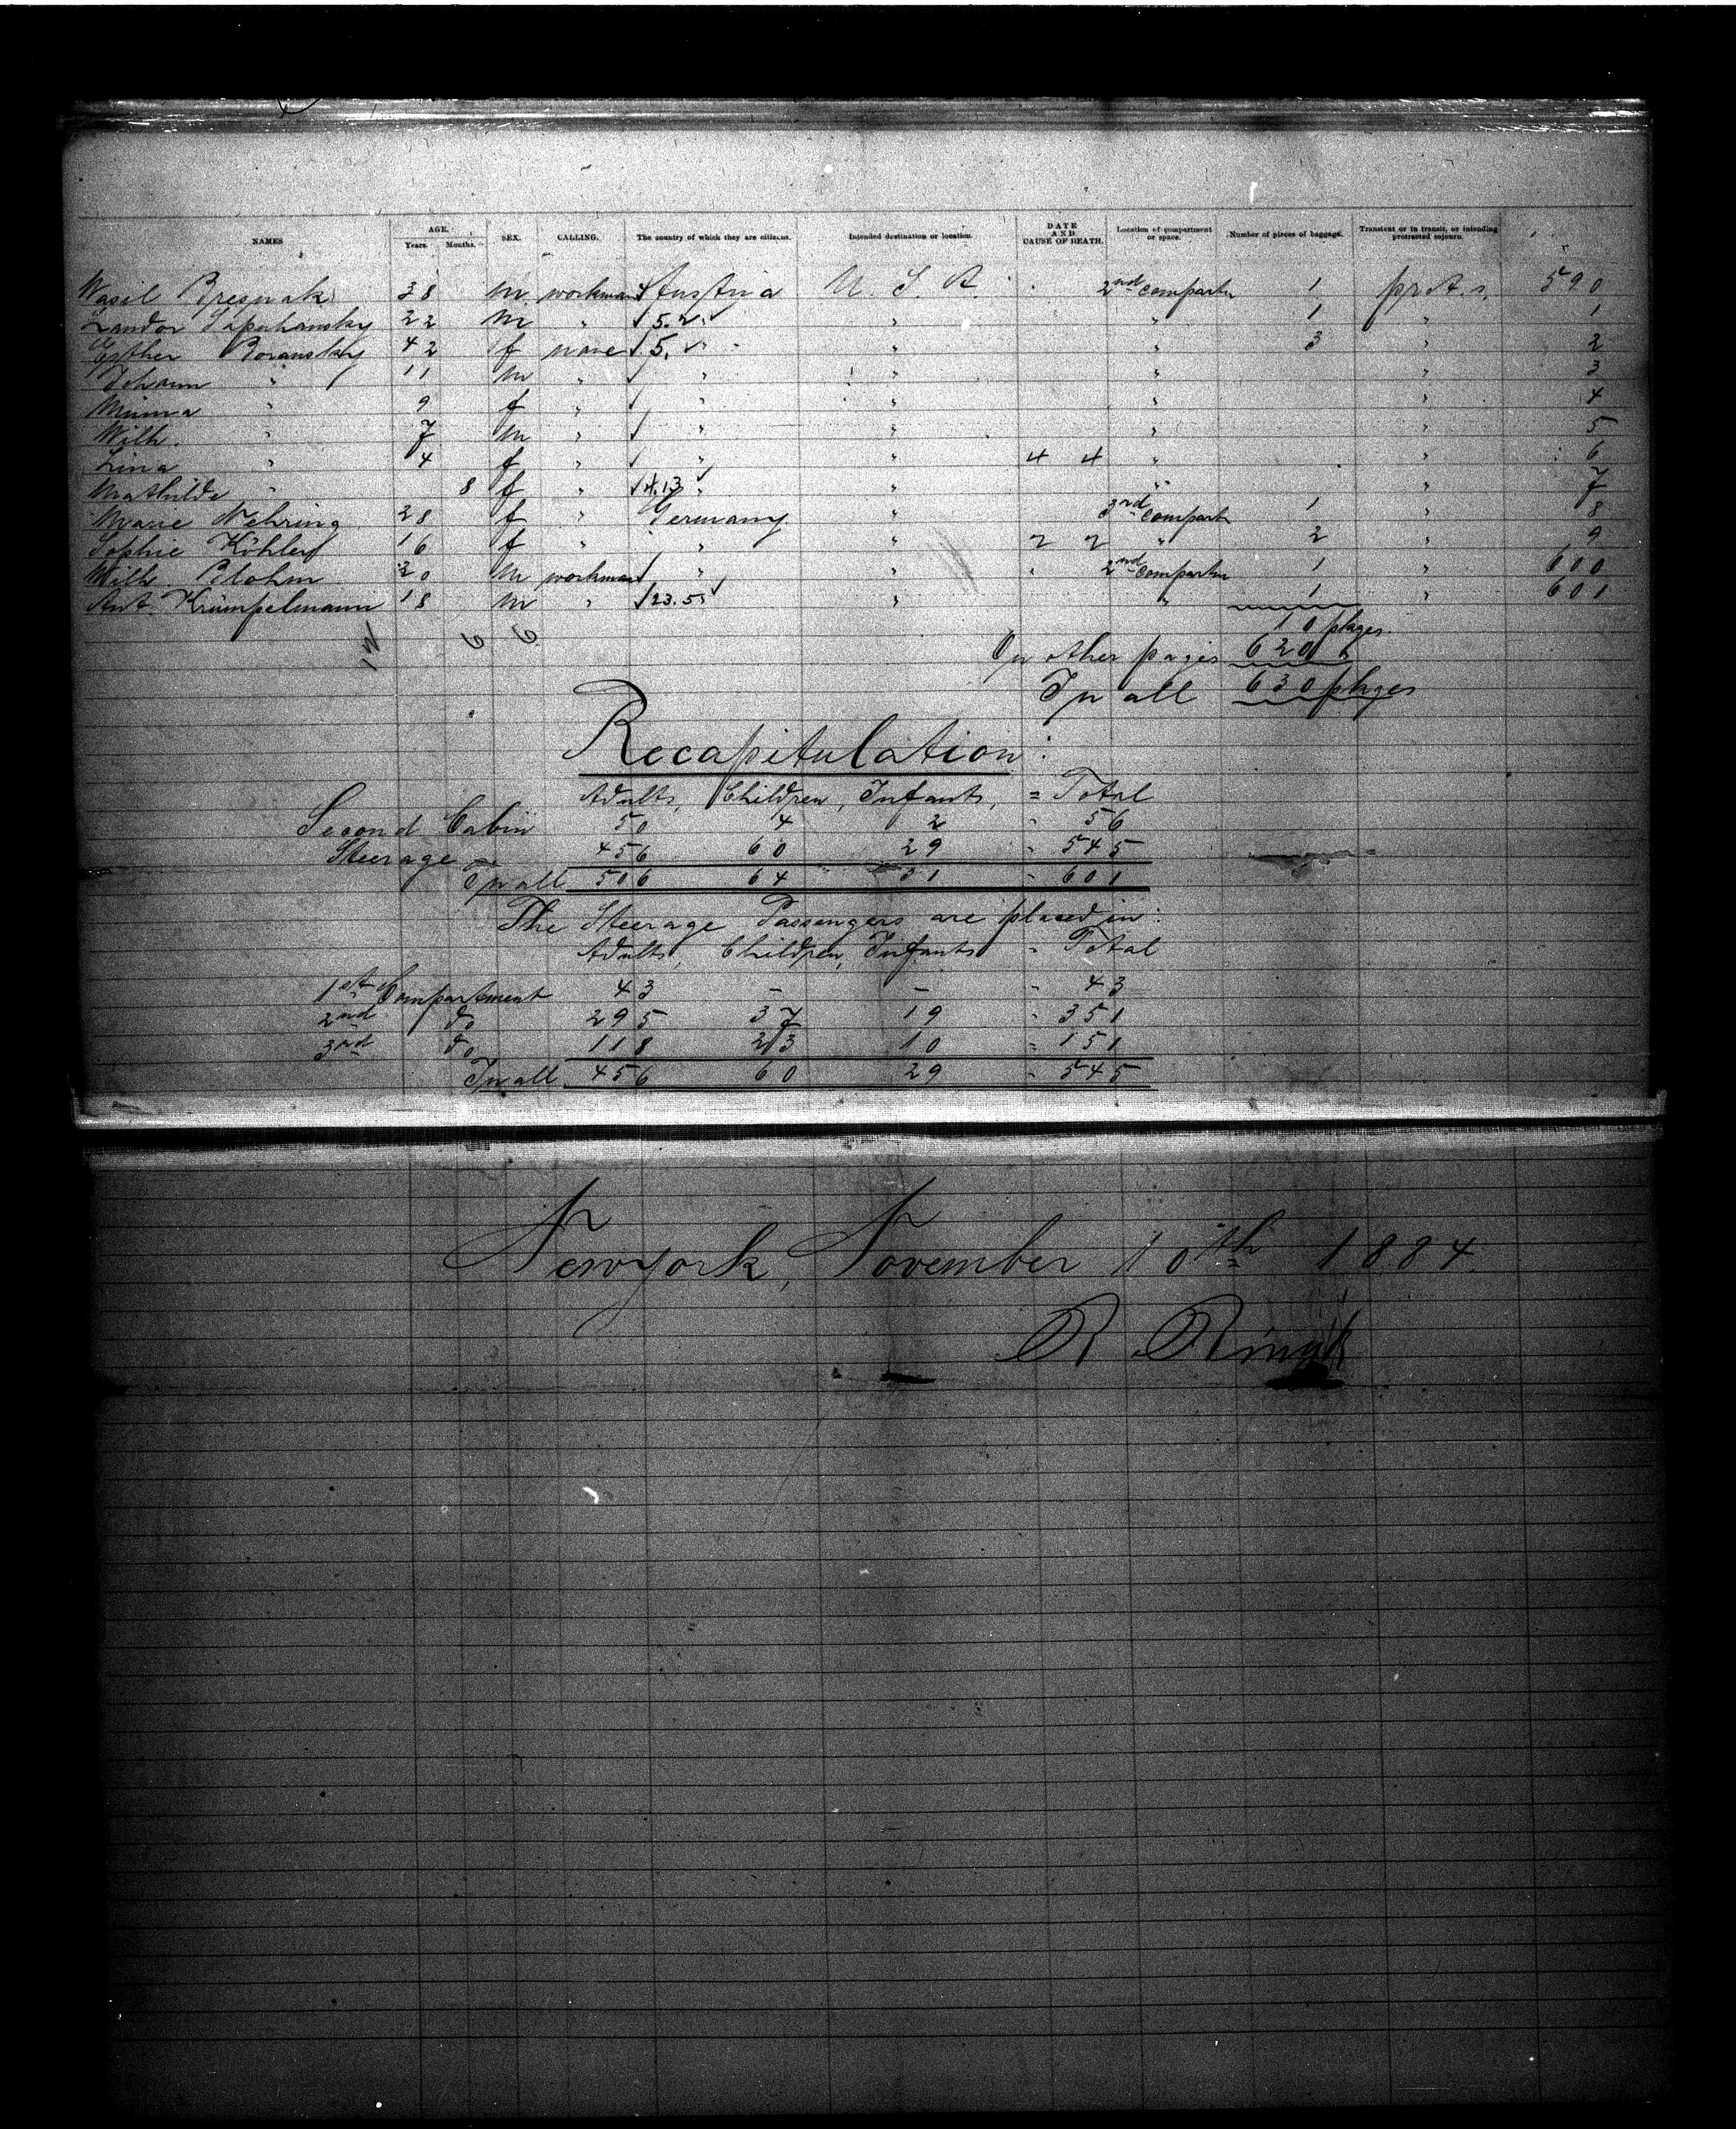 NAMES AGE. Years. Months. SEX. CALLING. The country of which they are citizens. Intended destination or location. DATE AND CAUSE OF DEATH. Location of compartment or space. Number of pieces of baggage. Transient or in transit, or intending protracted sojourn.
Wasil 38 m workman Austria U. S. A. 2nd compartm 1 pr. A. s. 590
22 m " 5.2. " " 1 " 1
Esther Boransky 42 f none 5. " " " 3 " 2
Johann " 11 m " " " " " 3
Minna " 9 f " " " " " 4
Wilh. " 7 m " " " " " 5
Lina " 4 f " " " 4 4 " " 6
Mathilde " 8 f " 4.13 " " " " 7
Marie Nehring 28 f " Germany " 3rd compartm 1 " 8
Sophie Köhler 16 f " " " 2 2 " 2 " 9
Wilh. Blohm 20 m workman " " 2nd compartm 1 " 600
Ant. Krümpelmann 18 m " 23.5 " " 1 " 601
10 pkges.
12 6 6
On other pages 620 "
In all 630 pkges
Recapitulation:
Adults, Children, Infants, = Total
Second Cabin 50 4 2 " 56
Steerage 456 60 29 " 545
In all 506 64 31 " 601
The Steerage Passengers are placed in:
Adults, Children, Infants = Total
1st Compartment 43 - - " 43
2nd do 295 37 19 " 351
3rd do 118 23 10 = 151
In all 456 60 29 " 545
Newyork, November 10th 1884.
R. Ringk